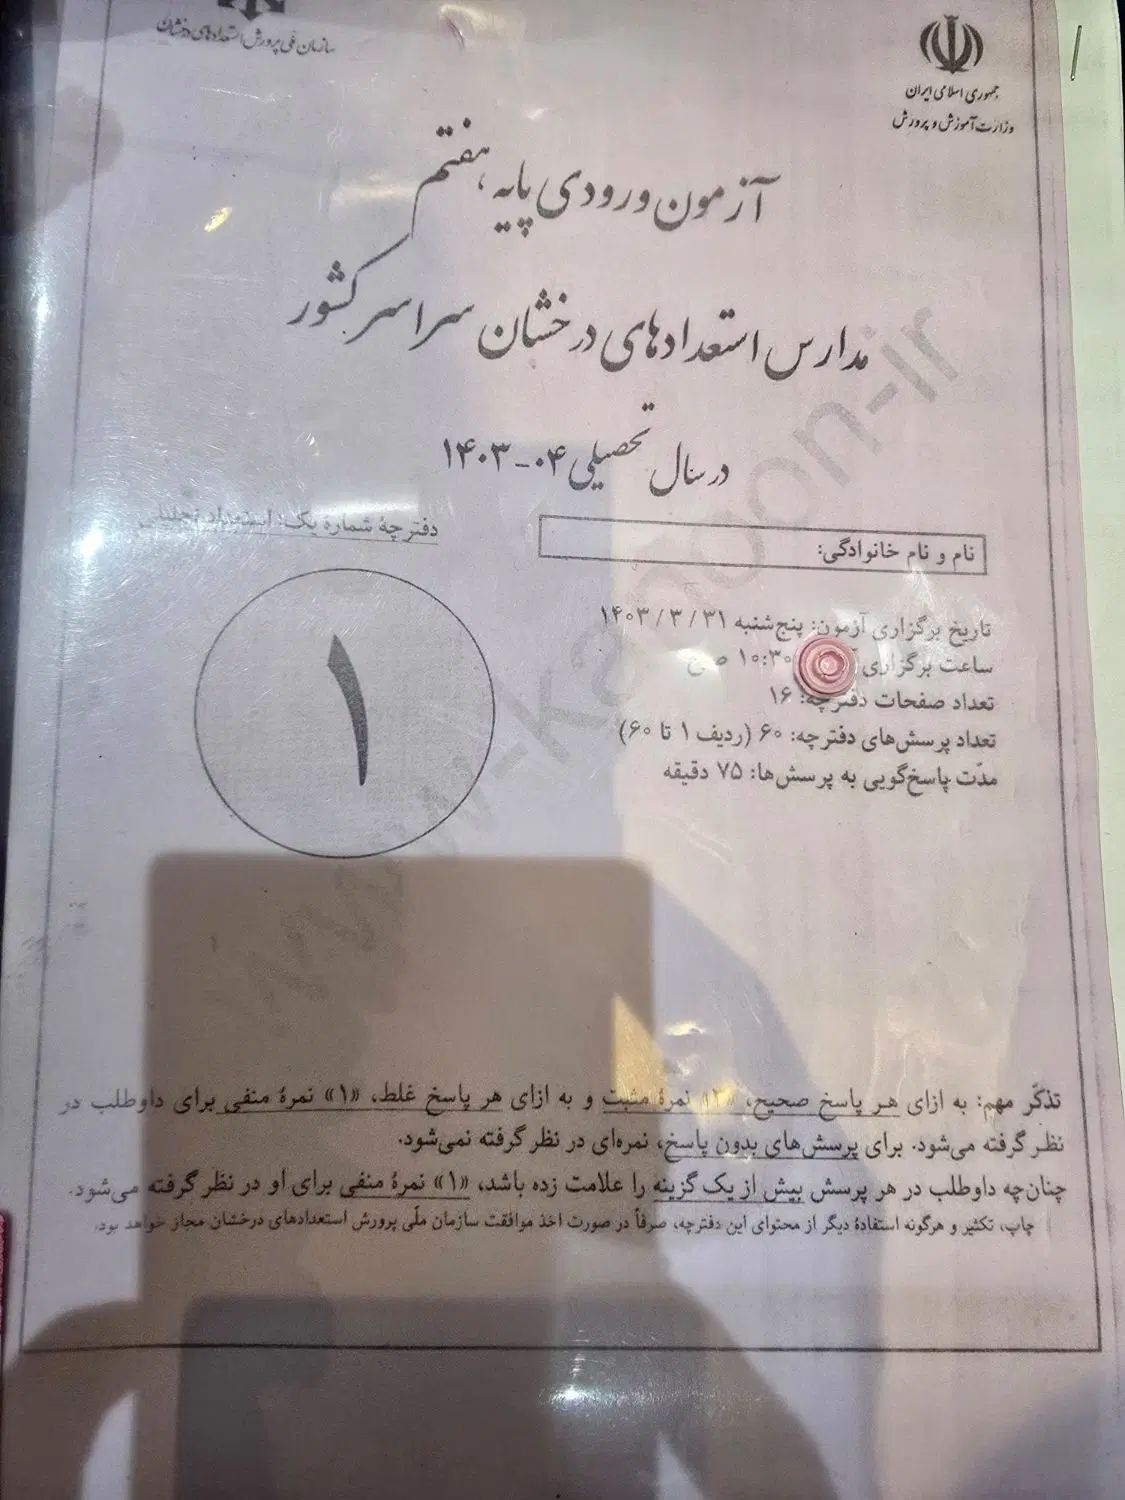 سازمان ملّی پرورش استعدادهای درخشان
جمهوری اسلامی ایران
وزارت آموزش و پرورش
آزمون ورودی پایه هفتم
مدارس استعدادهای درخشان سراسر کشور
در سال تحصیلی ۰۴-۱۴۰۳
دفترچهٔ شماره یک: استعداد تحلیلی
نام و نام خانوادگی:
۱
تاریخ برگزاری آزمون: پنج‌شنبه ۳۱ / ۳ / ۱۴۰۳
ساعت برگزاری ۱۰:۳۰
تعداد صفحات دفترچه: ۱۶
تعداد پرسش‌های دفترچه: ۶۰ (ردیف ۱ تا ۶۰)
مدّت پاسخ‌گویی به پرسش‌ها: ۷۵ دقیقه
تذکّر مهم: به ازای هر پاسخ صحیح، نمرهٔ مثبت و به ازای هر پاسخ غلط، «۱» نمرهٔ منفی برای داوطلب در
نظر گرفته می‌شود. برای پرسش‌های بدون پاسخ، نمره‌ای در نظر گرفته نمی‌شود.
چنان‌چه داوطلب در هر پرسش بیش از یک گزینه را علامت زده باشد، «۱» نمرهٔ منفی برای او در نظر گرفته می‌شود.
چاپ، تکثیر و هرگونه استفادهٔ دیگر از محتوای این دفترچه، صرفاً در صورت اخذ موافقت سازمان ملّی پرورش استعدادهای درخشان مجاز خواهد بود.
www-kanoon-ir